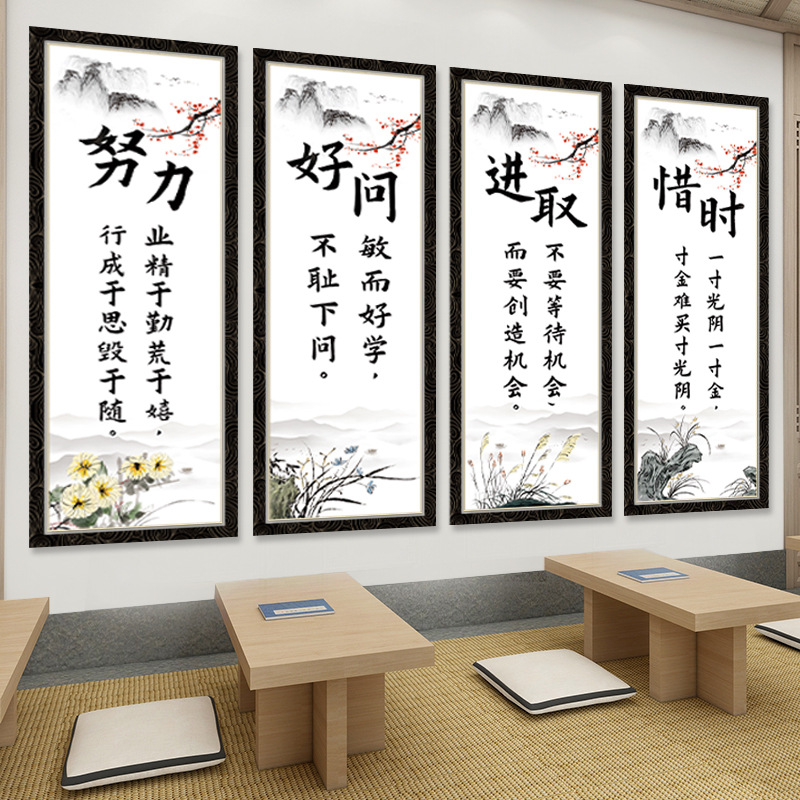 努力
业精于勤荒于嬉，
行成于思毁于随。
好问
敏而好学，
不耻下问。
进取
不要等待机会、
而要创造机会。
惜时
一寸光阴一寸金，
寸金难买寸光阴。